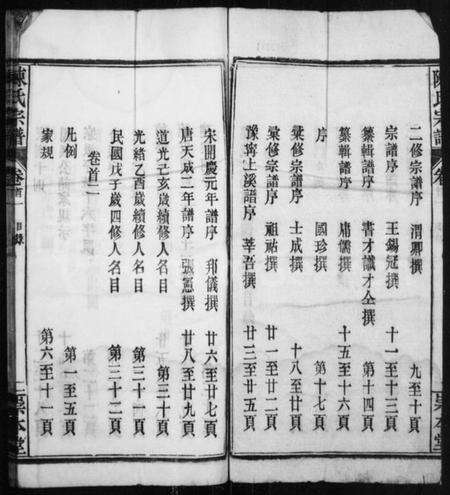 陳氏宗譜
卷
二修宗譜序 渭卿撰 九至十頁
宗譜序 王錫冠撰 十一至十三頁
纂輯譜序 書才識才仝撰 第十四頁
纂輯譜序 庸儀撰 十五至十六頁
序 國珍撰 第十七頁
彙修宗譜序 士成撰 十八至廿頁
彙修宗譜序 祖祐撰 廿一至廿二頁
豫寧上溪譜序 莘吾撰 廿三至廿五頁
宋開慶元年譜序 邦儀撰 廿六至廿七頁
唐天成二年譜序 張憲撰 廿八至廿九頁
卷首二
道光己亥歲續修人名目 第三十頁
光緒乙酉歲續修人名目 第三十一頁
民國戊子歲四修人名目 第三十二頁
凡例 第一至五頁
家規 第六至十一頁
陳氏宗譜
卷首
目錄
本堂